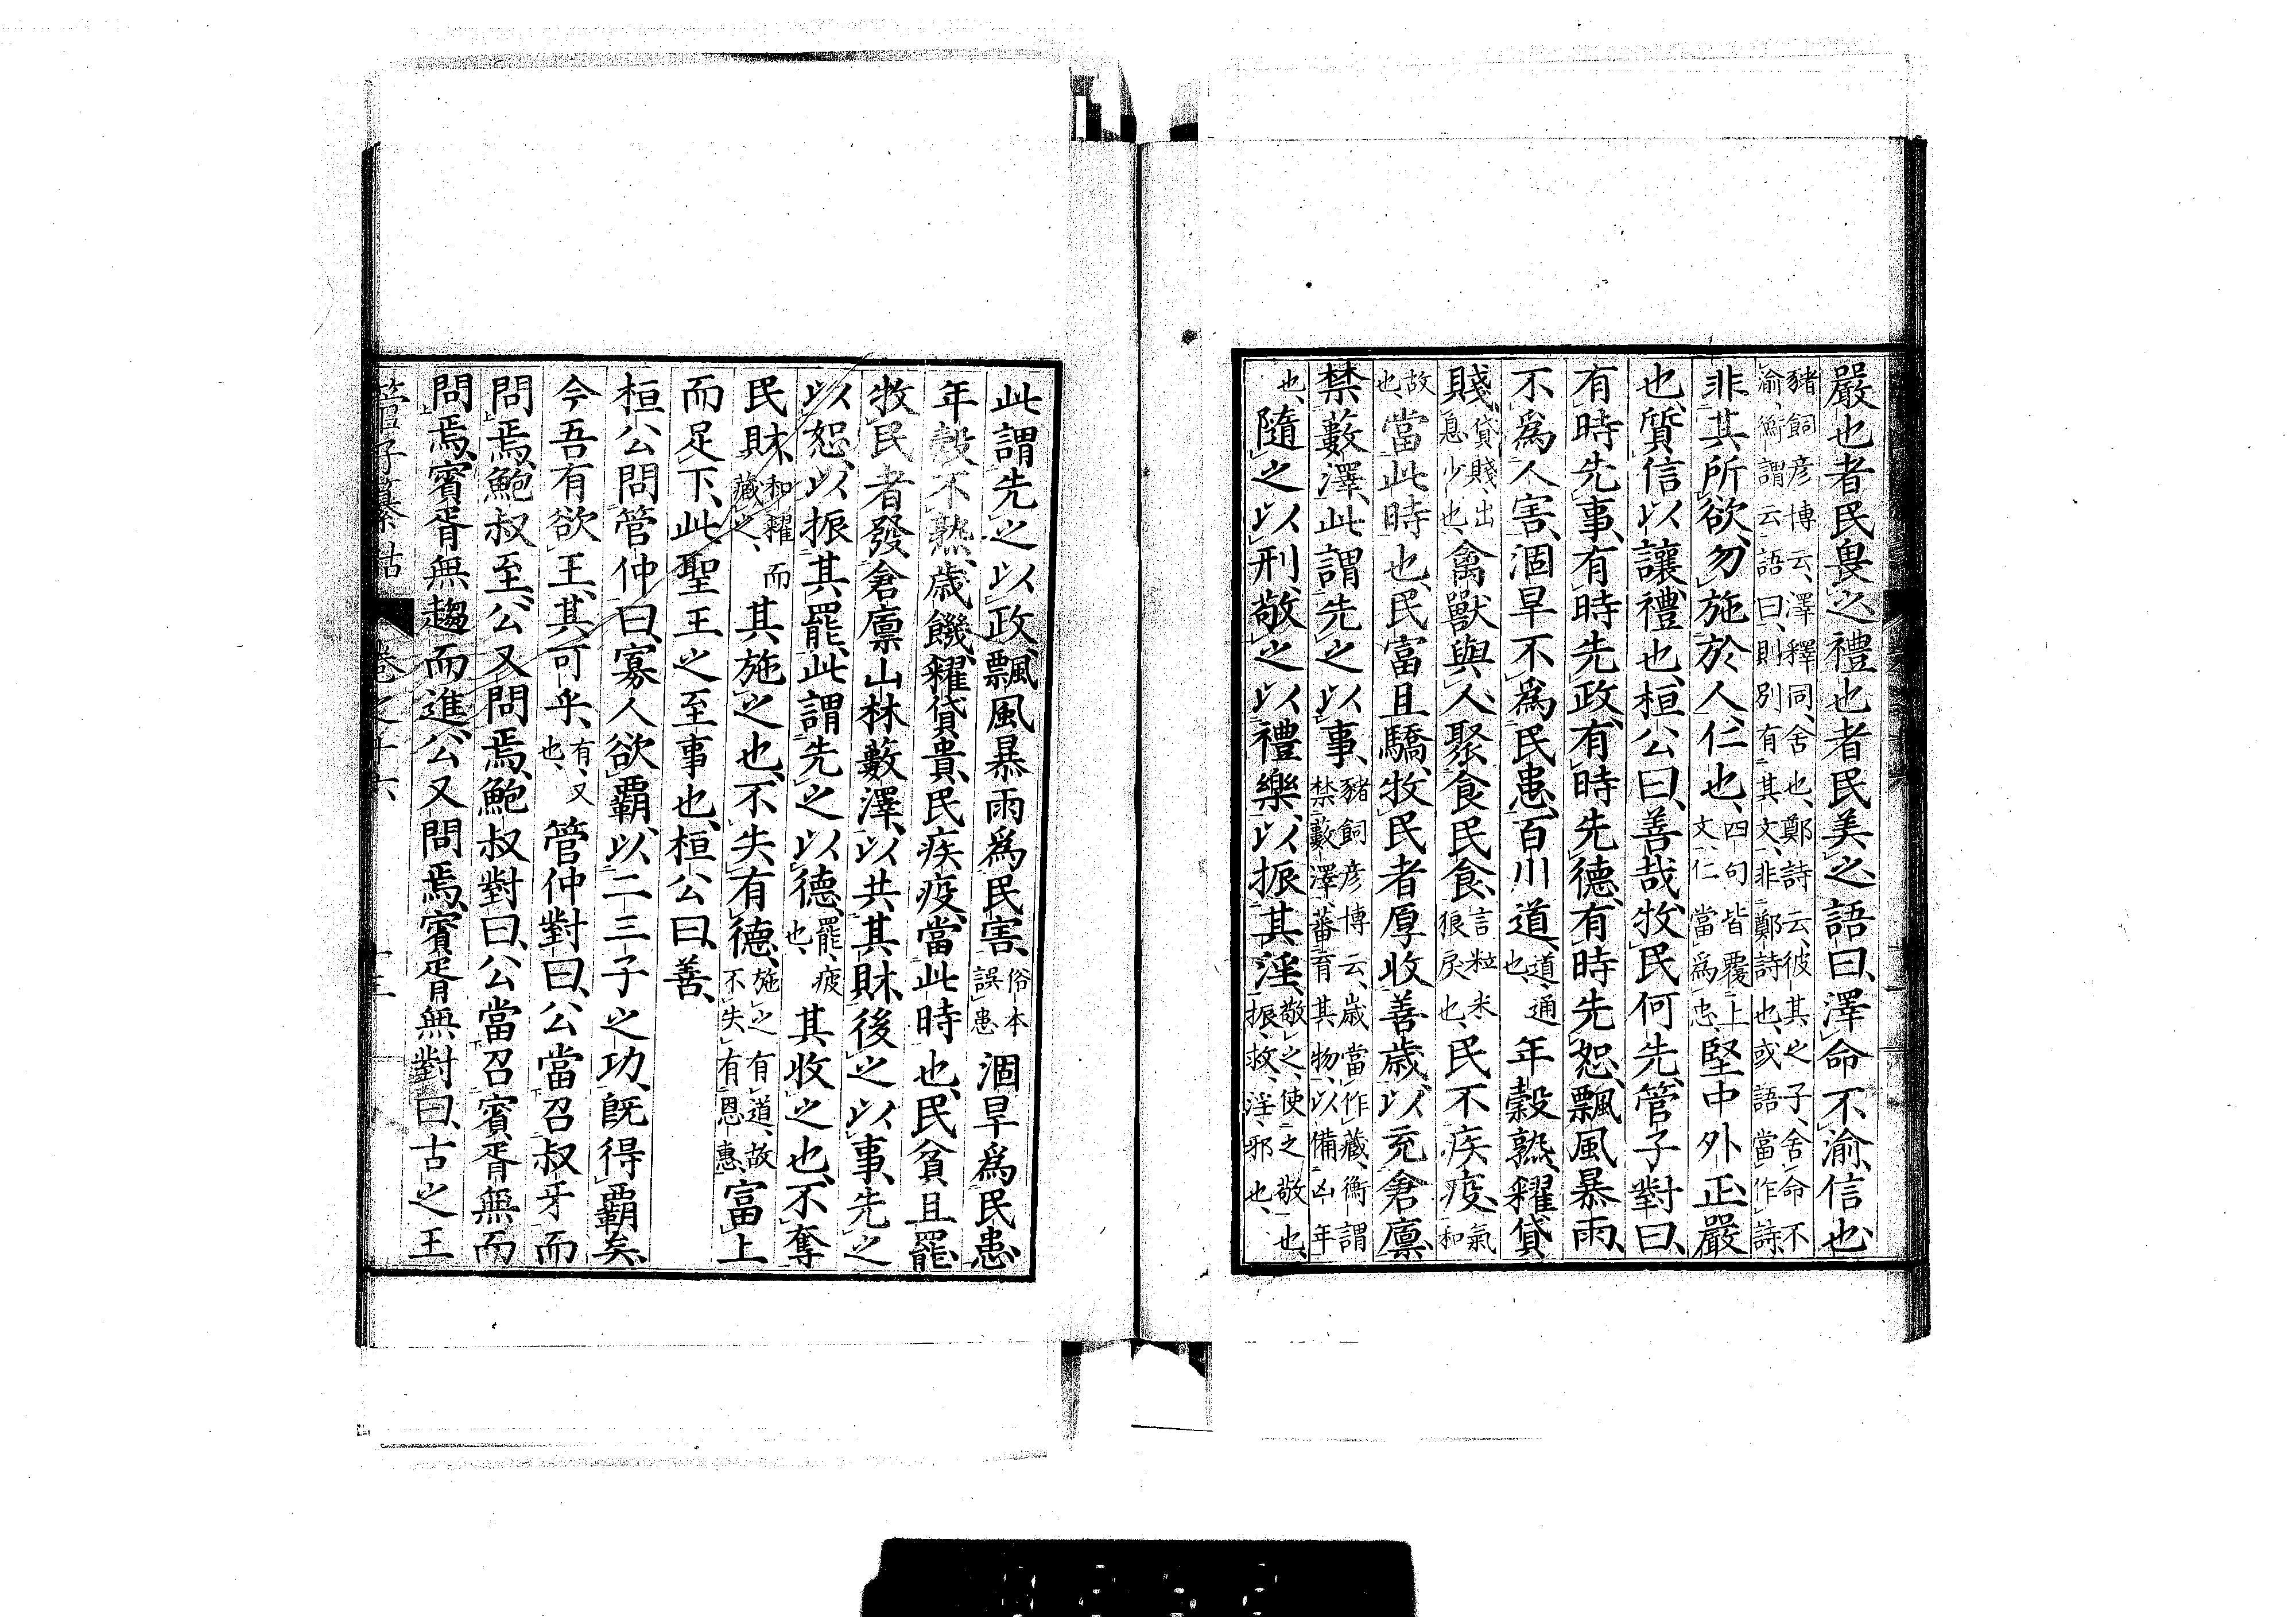 嚴也者民畏之禮也者民美之語曰、澤命不渝、信也、
豬飼彦博云、澤釋同、舍也、鄭詩云、彼其之子、舍命不
渝、衡謂云、語曰、則別有其文、非鄭詩也、或語當作詩、
非其所欲、勿施於人、仁也、四句皆覆上文、仁當爲忠、堅中外正、嚴
也、質信以讓、禮也、桓公曰、善哉、牧民何先、管子對曰、
有時先事、有時先政、有時先德、有時先恕、飄風暴雨、
不爲人害、涸旱不爲民患、百川道、道、通也、年穀熟、糴貸
賤、貸賤、出息少也、禽獸與人聚食民食、言粒米狼戾也、民不疾疫、和氣
故也、當此時也、民富且驕、牧民者厚收善歲、以充倉廩、
禁藪澤、此謂先之以事、豬飼彦博云、歲當作藏、衡謂禁藪澤、蕃育其物、以備凶年
也、隨之以刑、敬之以禮樂、以振其淫、敬之、使之敬也、振、救、淫、邪也、
此謂先之以政、飄風暴雨爲民害、俗本誤患涸旱爲民患、
年穀不熟、歲饑、糴貸貴、民疾疫、當此時也、民貧且罷、
牧民者發倉廩山林藪澤、以共其財、後之以事、先之
以恕、以振其罷、此謂先之以德、罷、疲也、其收之也、不奪
民財、和糴而藏之、其施之也、不失有德、施之有道、故不失有恩惠、富上
而足下、此聖王之至事也、桓公曰、善、
桓公問管仲曰、寡人欲霸、以二三子之功、既得霸矣、
今吾有欲王、其可乎、有、又也、管仲對曰、公當召叔牙而
問焉、鮑叔至、公又問焉、鮑叔對曰、公當召賓胥無而
問焉、賓胥無趨而進、公又問焉、賓胥無對曰、古之王
管子纂詁 卷之十六